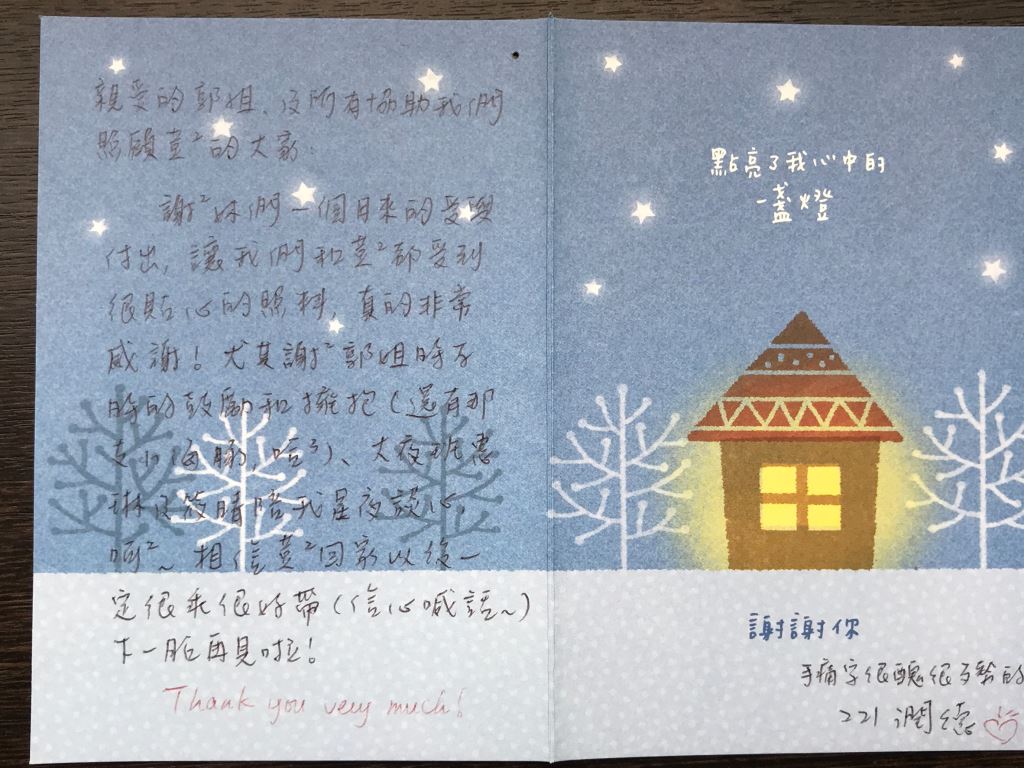 親愛的郭姐、及所有協助我們
照顧荁²的大家:
謝²妳們一個月來的愛與
付出,讓我們和荁²都受到
很貼心的照料,真的非常
感謝!尤其謝²郭姐時不
時的鼓勵和擁抱(還有那
支小海豚,哈³)、大夜班惠
琳不管時陪我星夜談心,
呵²~相信荁²回家以後一
定很乖很好帶(信心喊話~)
下一胎再見啦!
Thank you very much!
點亮了我心中的
一盞燈
謝謝你
手痛字很醜很歹勢的
221 潤德